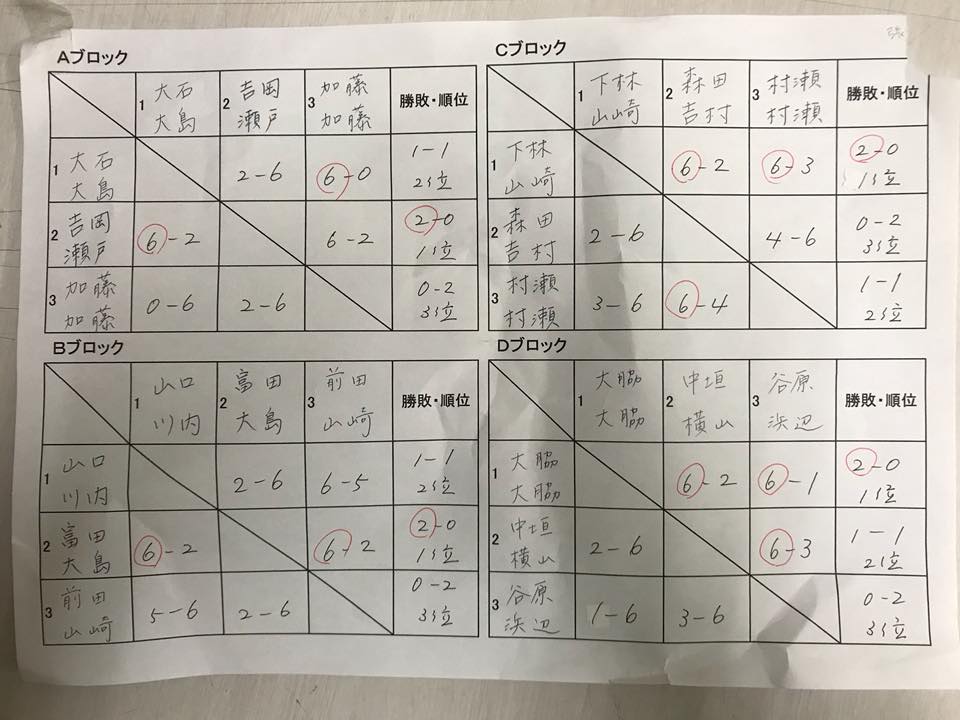 Aブロック
1 大石 大島
2 吉岡 瀬戸
3 加藤 加藤
勝敗・順位
1 大石 大島
2-6
6-0
1-1 2位
2 吉岡 瀬戸
6-2
6-2
2-0 1位
3 加藤 加藤
0-6
2-6
0-2 3位
Bブロック
1 山口 川内
2 富田 大島
3 前田 山崎
勝敗・順位
1 山口 川内
2-6
6-5
1-1 2位
2 富田 大島
6-2
6-2
2-0 1位
3 前田 山崎
5-6
2-6
0-2 3位
Cブロック
1 下林 山崎
2 森田 吉村
3 村瀬 村瀬
勝敗・順位
1 下林 山崎
6-2
6-3
2-0 1位
2 森田 吉村
2-6
4-6
0-2 3位
3 村瀬 村瀬
3-6
6-4
1-1 2位
Dブロック
1 大脇 大脇
2 中垣 横山
3 谷原 浜辺
勝敗・順位
1 大脇 大脇
6-2
6-1
2-0 1位
2 中垣 横山
2-6
6-3
1-1 2位
3 谷原 浜辺
1-6
3-6
0-2 3位